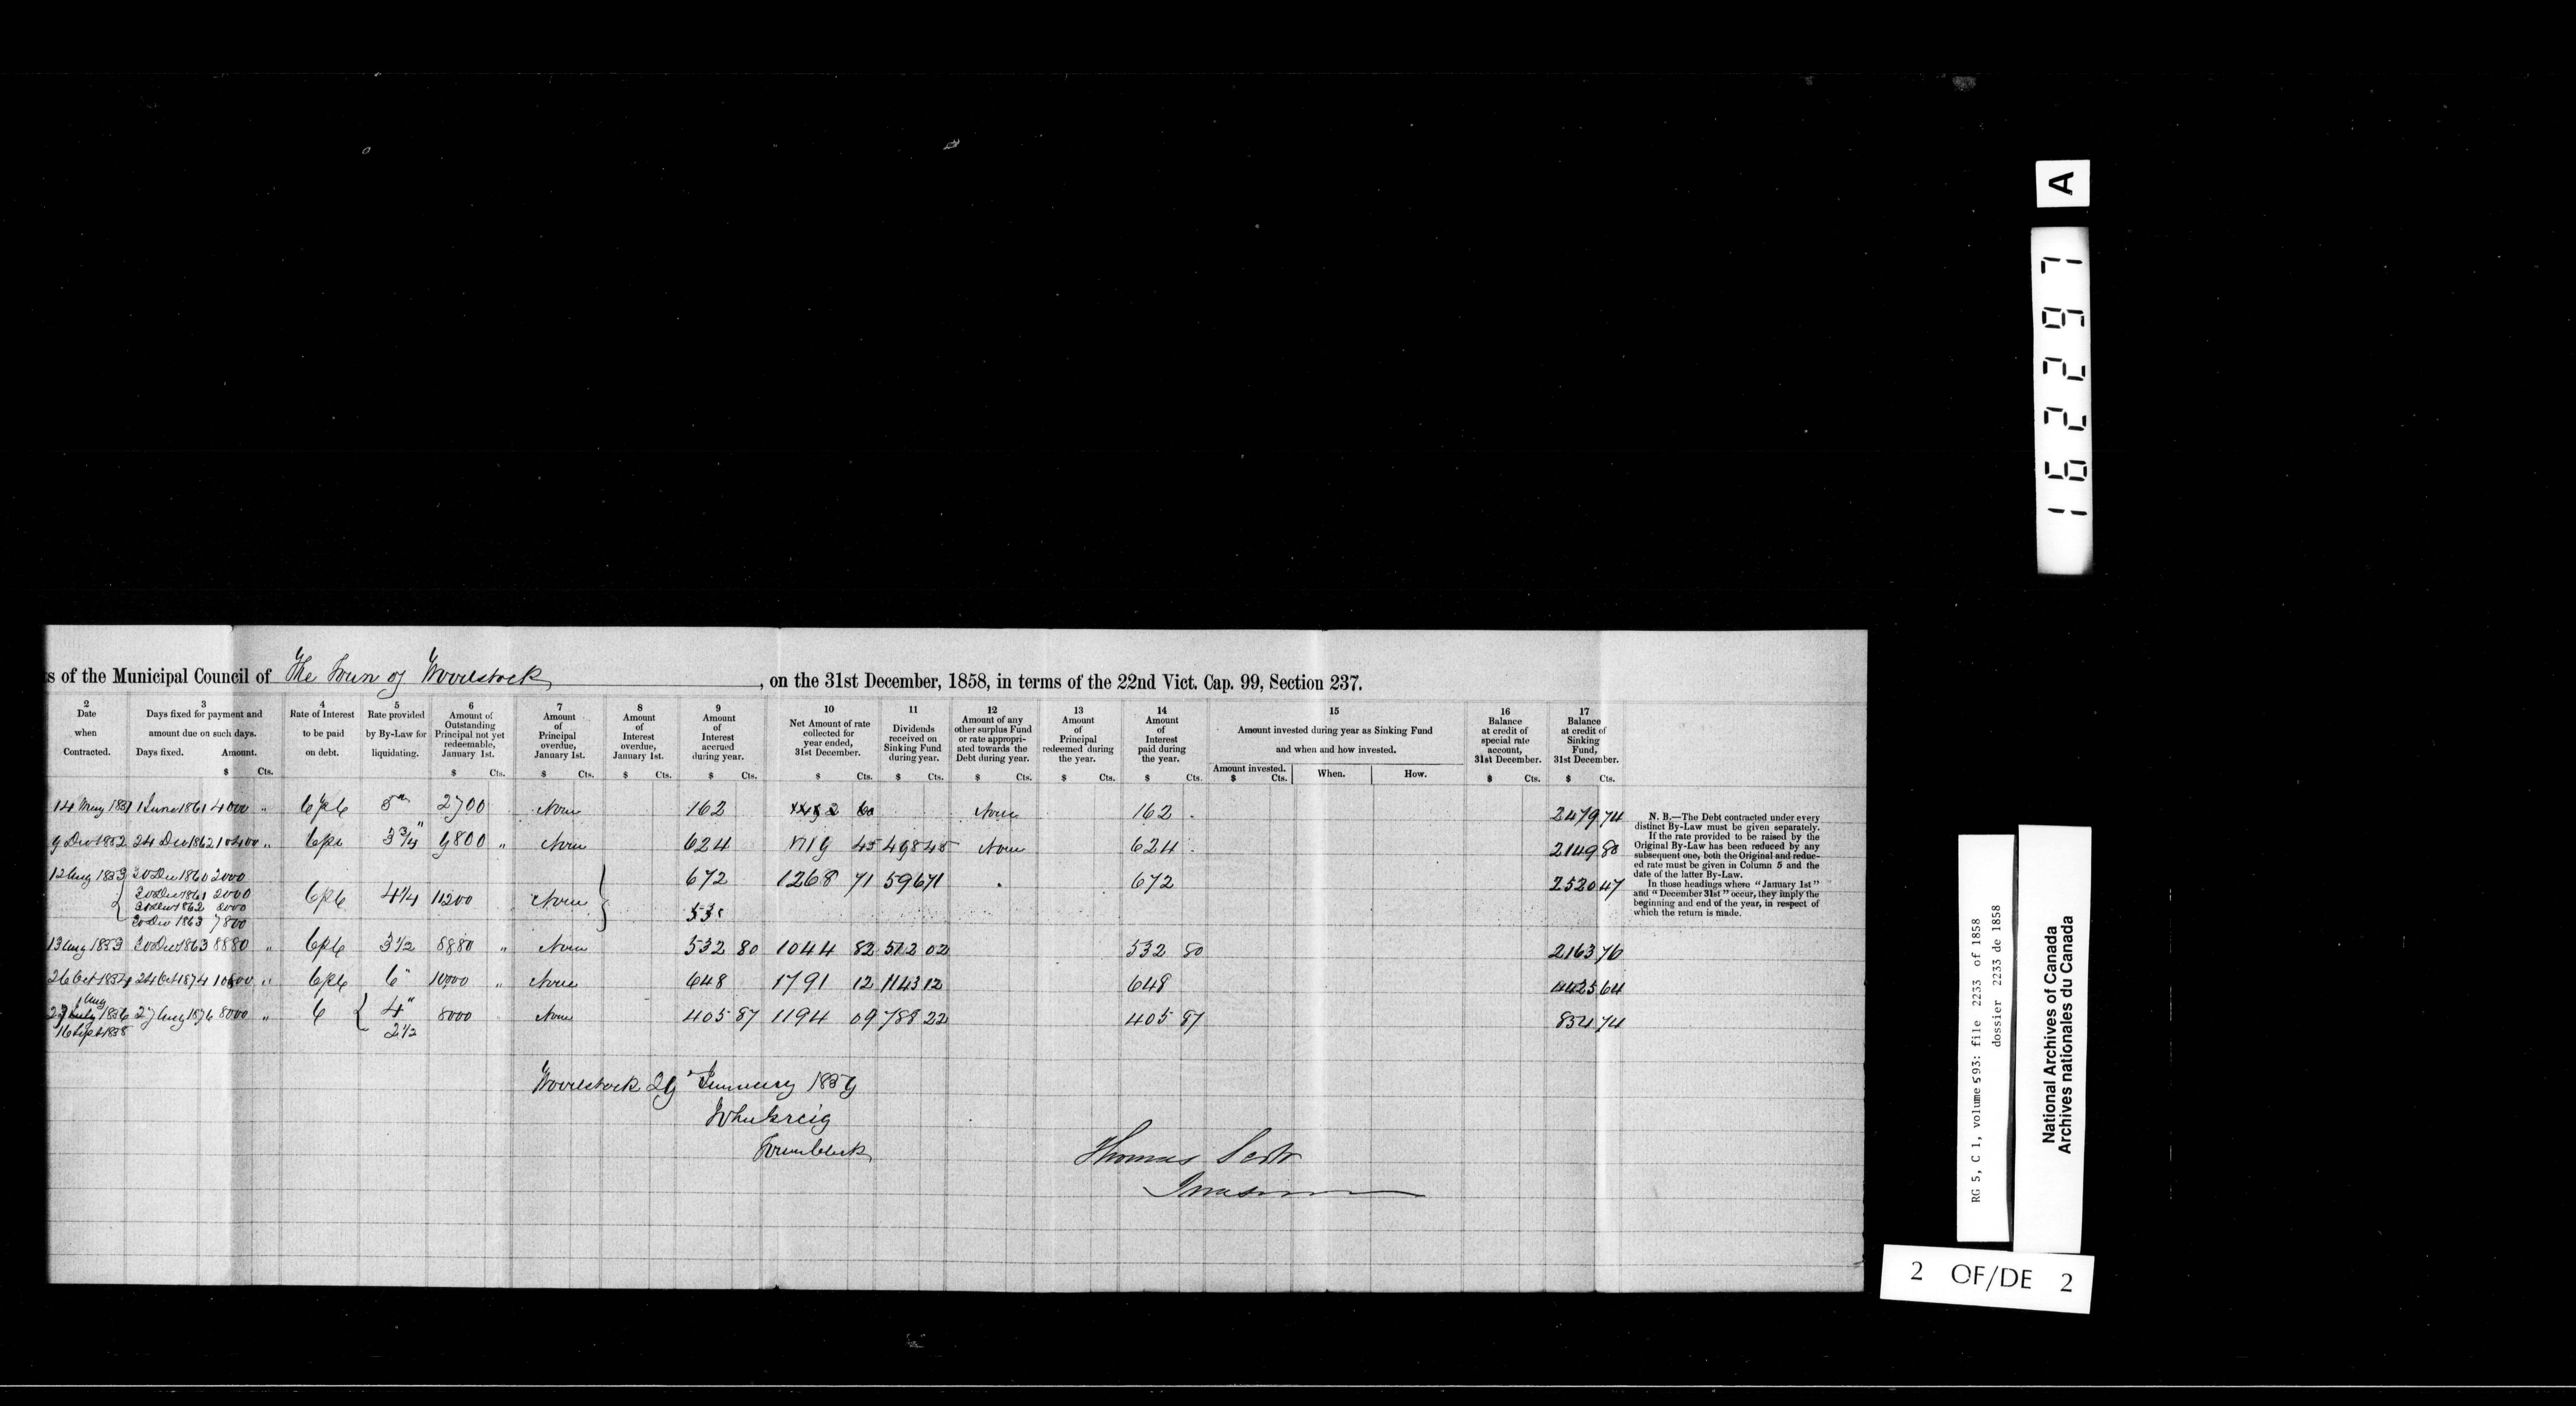 s of the Municipal Council of The Town of Woodstock, on the 31st December, 1858, in terms of the 22nd Vict. Cap. 99, Section 237.
2 Date when Contracted.
3 Days fixed for payment and amount due on such days. Days fixed. Amount. $ Cts.
4 Rate of Interest to be paid on debt.
5 Rate provided by By-Law for liquidating.
6 Amount of Outstanding Principal not yet redeemable, January 1st. $ Cts.
7 Amount of Principal overdue, January 1st. $ Cts.
8 Amount of Interest overdue, January 1st. $ Cts.
9 Amount of Interest accrued during year. $ Cts.
10 Net Amount of rate collected for year ended, 31st December. $ Cts.
11 Dividends received on Sinking Fund during year. $ Cts.
12 Amount of any other surplus Fund or rate appropriated towards the Debt during year. $ Cts.
13 Amount of Principal redeemed during the year. $ Cts.
14 Amount of Interest paid during the year. $ Cts.
15 Amount invested during year as Sinking Fund and when and how invested. Amount invested. $ Cts. When. How.
16 Balance at credit of special rate account, 31st December. $ Cts.
17 Balance at credit of Sinking Fund, 31st December. $ Cts.
14 May 1851 1 June 1861 4000 " 2700 None 162 None 162 2479 74
9 Dec 1852 24 Dec 1862 10400 " 3 3/4 " 9800 " None 624 1119 45 498 45 None 624 2149 80
12 Aug 1853 30 Dec 1860 2000 672 1268 71 596 71 672 2520 47
30 Dec 1861 2000 4 1/4 11200 None
30 Dec 1862 2000
30 Dec 1863 7800
13 Aug 1853 30 Dec 1863 8880 " 3 1/2 8880 " None 532 80 1044 82 512 02 532 80 2163 76
26 Oct 1854 24 Oct 1874 " 6 " " None 648 1791 12 1143 12 648 4425 64
27 Aug 1876 8000 " 6 4 " 8000 None 405 87 1194 09 788 22 405 87 854 74
16 Sept 1858 2 1/2
N. B.—The Debt contracted under every distinct By-Law must be given separately.
If the rate provided to be raised by the Original By-Law has been reduced by any subsequent one, both the Original and reduced rate must be given in Column 5 and the date of the latter By-Law.
In those headings where "January 1st" and "December 31st" occur, they imply the beginning and end of the year, in respect of which the return is made.
Woodstock 29 January 1859
Town Clerk
Thomas Scott
A
162297
RG 5, C 1, volume 593: file 2233 of 1858
dossier 2233 de 1858
National Archives of Canada
Archives nationales du Canada
2 OF/DE 2